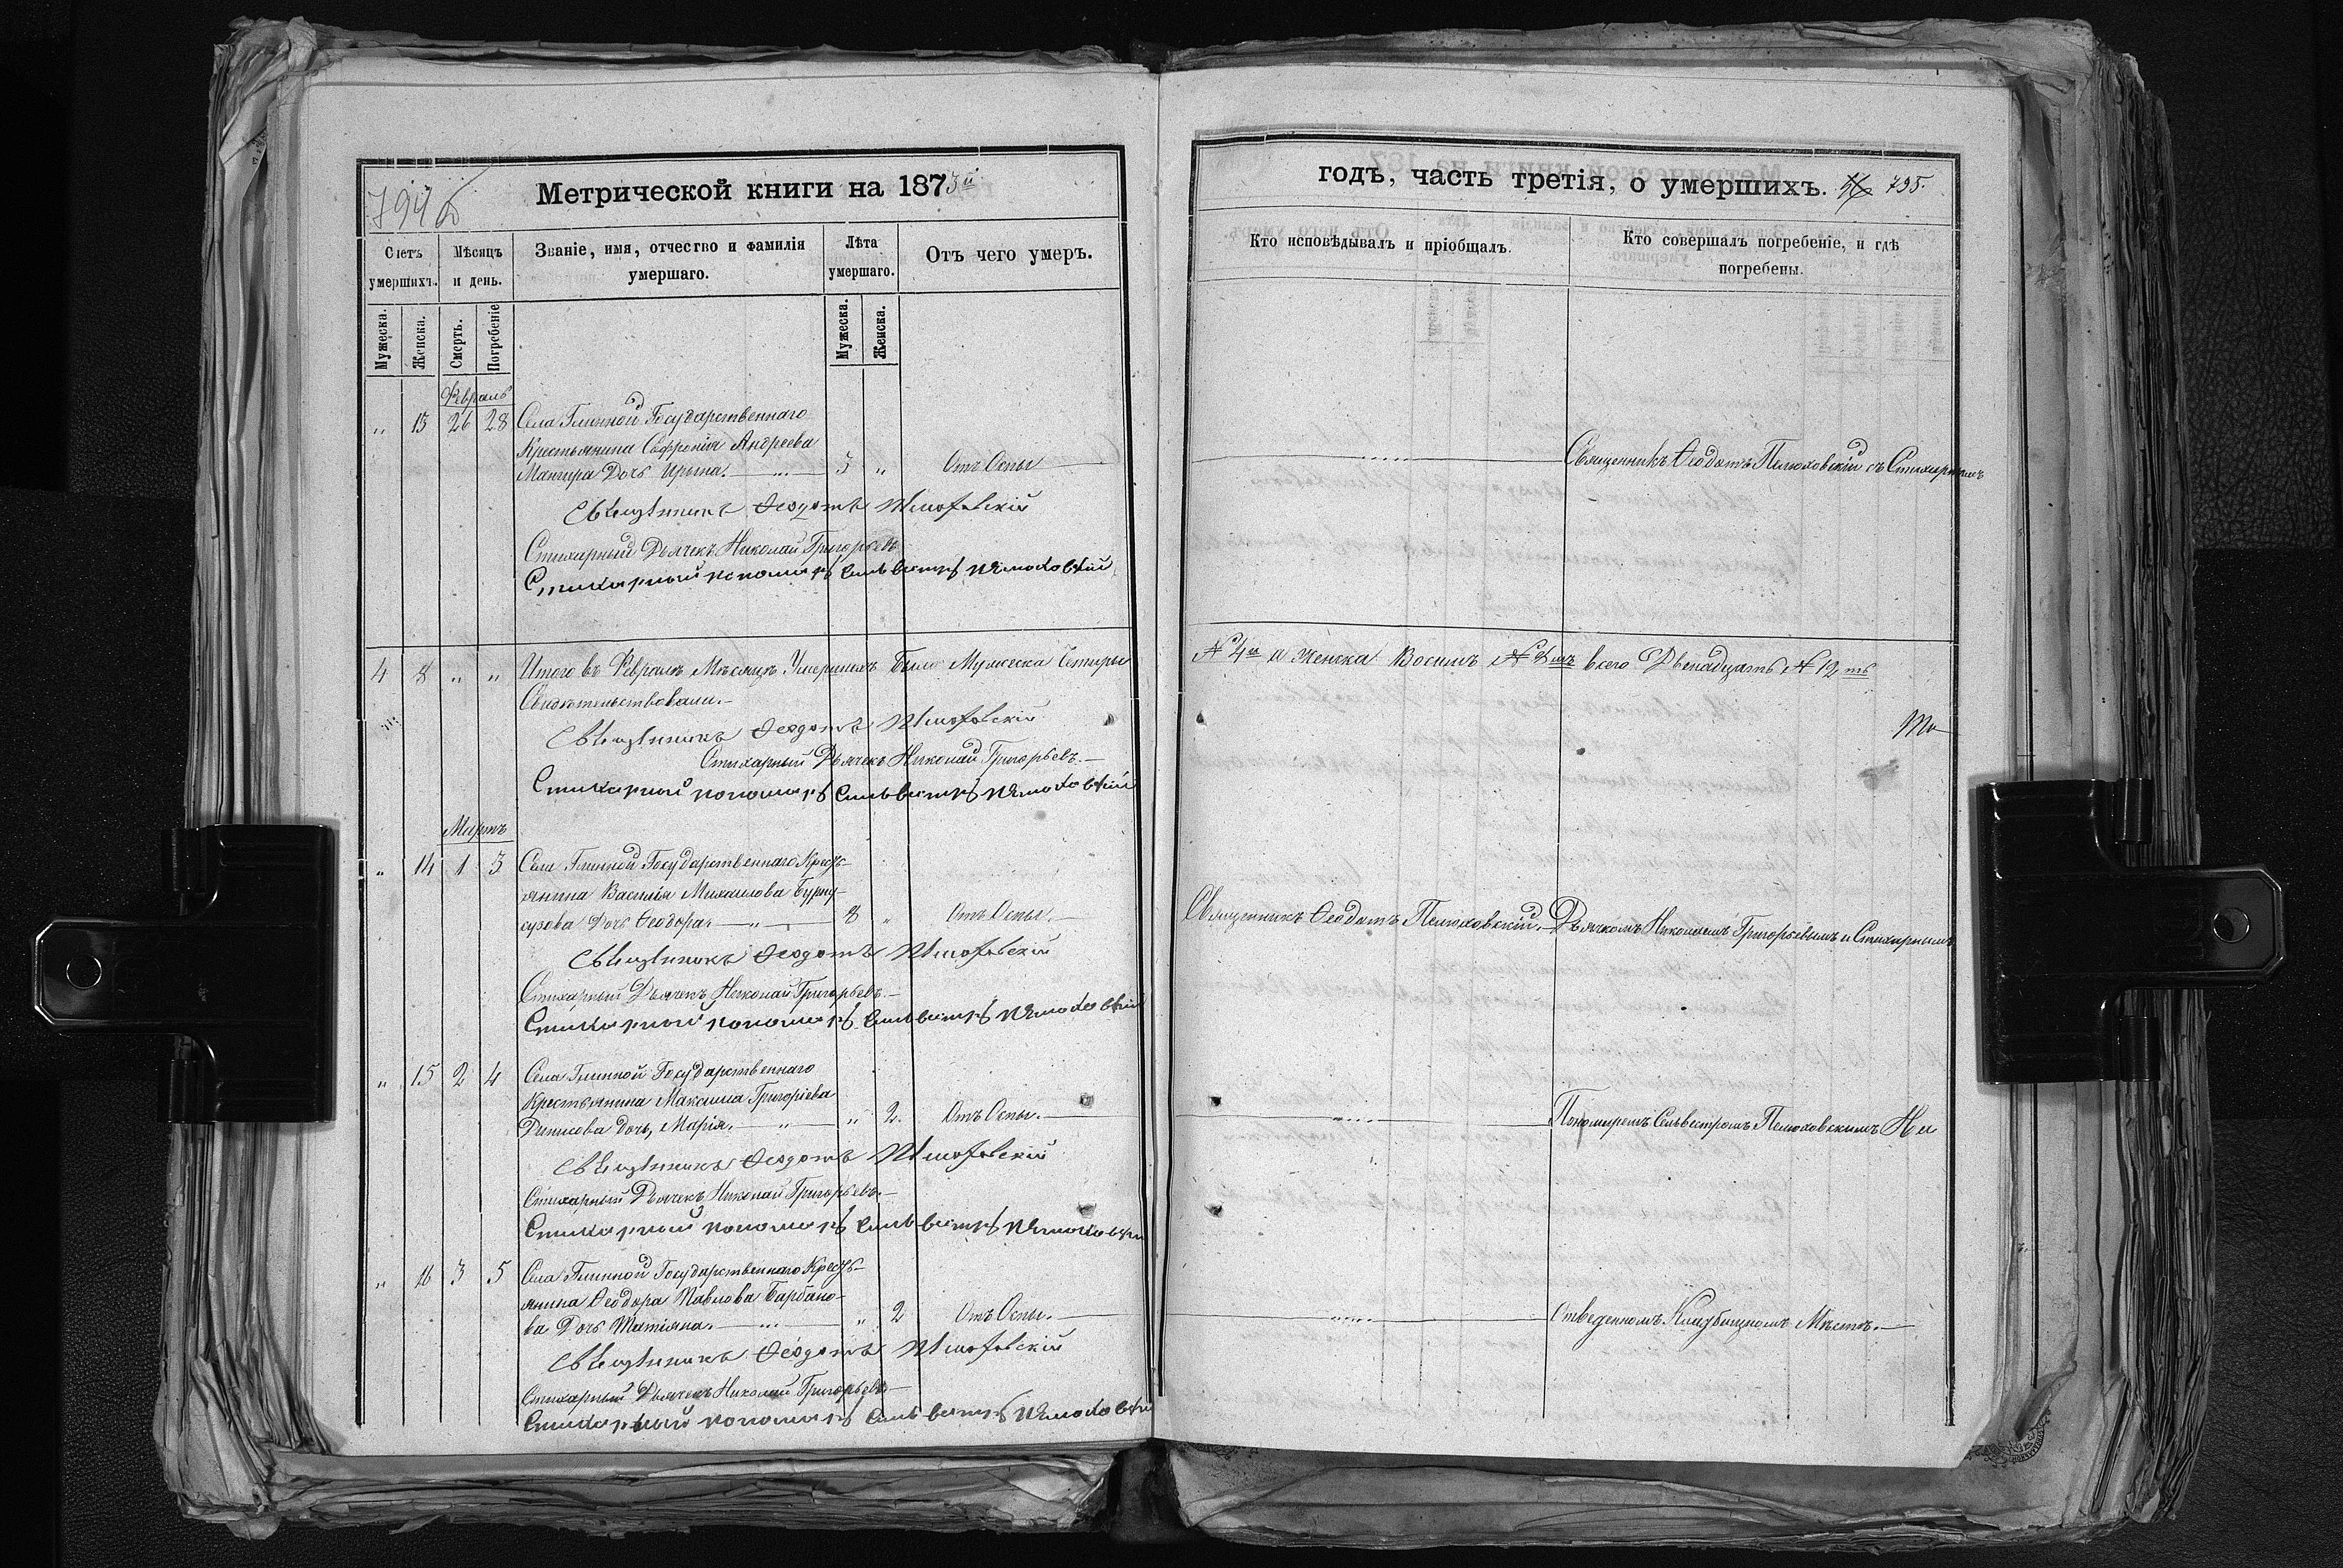 794 б
Метрической книги на 1873й
Счетъ умершихъ.
Мѣсяцъ и день.
Званіе, имя, отчество и фамилія умершаго.
Лѣта умершаго.
Отъ чего умеръ.
Мужеска.
Женска.
Смерть.
Погребеніе
Мужеска.
Женска.
Февраль
„ 13 26 28 Села Глинной Государственнаго
Крестьянина Софронія Андреева
Дочь Ирина. 3 „ Отъ Оспы
Священникъ Ѳеодотъ Пелюховскій
Стихарный Дьячекъ Николай Григорьевъ
Стихарный пономарь Сильвестръ Пелюховскій
4 8 „ „ Итого въ Февралѣ Мѣсяцѣ Умершихъ Было Мужеска Четыры
Свидѣтельствовали.
Священникъ Ѳеодотъ Пелюховскій
Стихарный Дьячекъ Николай Григорьевъ.
Стихарный пономарь Сильвестръ Пелюховскій
Мартъ
„ 14 1 3 Села Глинной Государственнаго Кресть-
янина Василія Михаилова
Дочь Ѳеодора. 8 „ Отъ Оспы.
Священникъ Ѳеодотъ Пелюховскій
Стихарный Дьячекъ Николай Григорьевъ.
Стихарный пономарь Сильвестръ Пелюховскій
„ 15 2 4 Села Глинной Государственнаго
Крестьянина Максима Григоріева
Дочь, Марія. „ 2. Отъ Оспы.
Священникъ Ѳеодотъ Пелюховскій
Стихарный Дьячекъ Николай Григорьевъ.
Стихарный пономарь Сильвестръ Пелюховскій
„ 16 3 5 Села Глинной Государственнаго Кресть-
янина Ѳеодора Павлова Барбано-
ва Дочь Татіяна. „ 2 Отъ Оспы.
Священникъ Ѳеодотъ Пелюховскій
Стихарный Дьячекъ Николай Григорьевъ
Стихарный пономарь Сильвестръ Пелюховскій
годъ, часть третія, о умершихъ. 795.
Кто исповѣдывалъ и пріобщалъ.
Кто совершалъ погребеніе, и гдѣ погребены.
Священникъ Ѳеодотъ Пелюховскій съ Стихарнымъ
№ 4й и Женска Восимъ № 8мъ всего Двенадцать № 12ть
Священникъ Ѳеодотъ Пелюховскій. Дьячкомъ Николаемъ Григорьевымъ и Стихарнымъ
Пономаремъ Сельвестромъ Пелюховскымъ На
Отведенномъ Кладбищномъ Мѣстѣ.